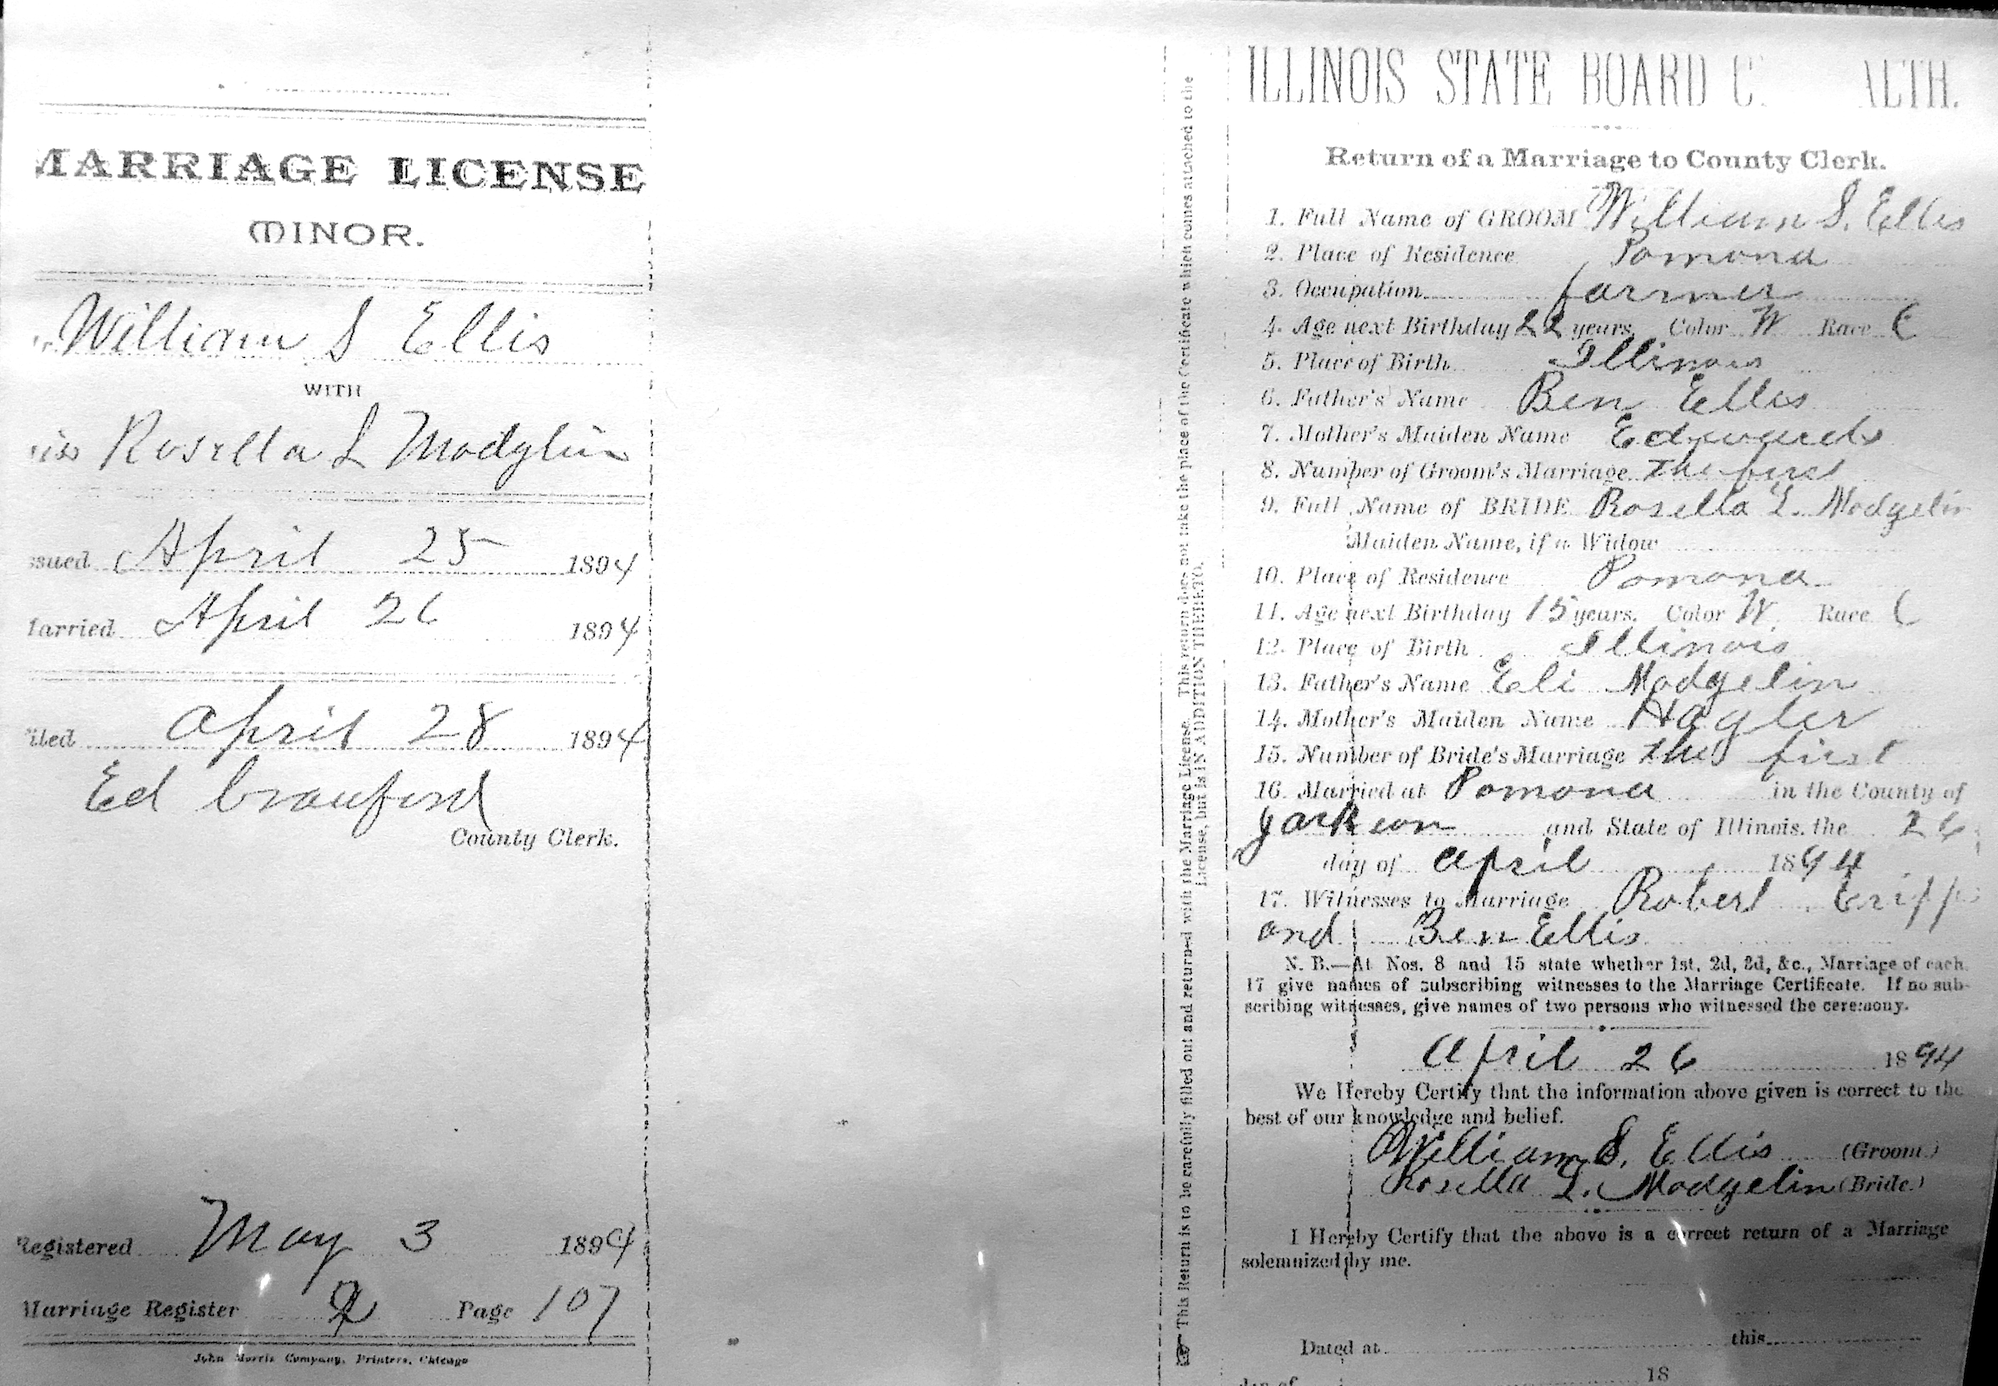 MARRIAGE LICENSE
MINOR.
William S Ellis
WITH
Rosella L Modglin
ssued April 25 1894
Married April 26 1894
Filed April 28 1894
Ed Crawford
County Clerk.
Registered May 3 1894
Marriage Register Page 107
John Morris Company, Printers, Chicago
This Return is to be carefully filled out and returned with the Marriage License. This return does not take the place of the Certificate which comes attached to the
License, but is IN ADDITION THERETO.
ILLINOIS STATE BOARD ALTH.
Return of a Marriage to County Clerk.
1. Full Name of GROOM William S. Ellis
2. Place of Residence Pomona
3. Occupation farmer
4. Age next Birthday 22 years, Color W Race C
5. Place of Birth Illinois
6. Father's Name Ben Ellis
7. Mother's Maiden Name Edwards
8. Number of Groom's Marriage the first
9. Full Name of BRIDE Rosella L. Modgelin
Maiden Name, if a Widow
10. Place of Residence Pomona
11. Age next Birthday 15 years, Color W. Race C
12. Place of Birth Illinois
13. Father's Name Eli Modgelin
14. Mother's Maiden Name Hagler
15. Number of Bride's Marriage the first
16. Married at Pomona in the County of
Jackson and State of Illinois, the 26
day of April 1894
17. Witnesses to Marriage Robert
and Ben Ellis
N. B.—At Nos. 8 and 15 state whether 1st, 2d, 3d, &c., Marriage of each.
17 give names of subscribing witnesses to the Marriage Certificate. If no sub-
scribing witnesses, give names of two persons who witnessed the ceremony.
April 26 1894
We Hereby Certify that the information above given is correct to the
best of our knowledge and belief.
William S. Ellis (Groom.)
Rosella L. Modgelin (Bride.)
I Hereby Certify that the above is a correct return of a Marriage
solemnized by me.
Dated at this
day of 18